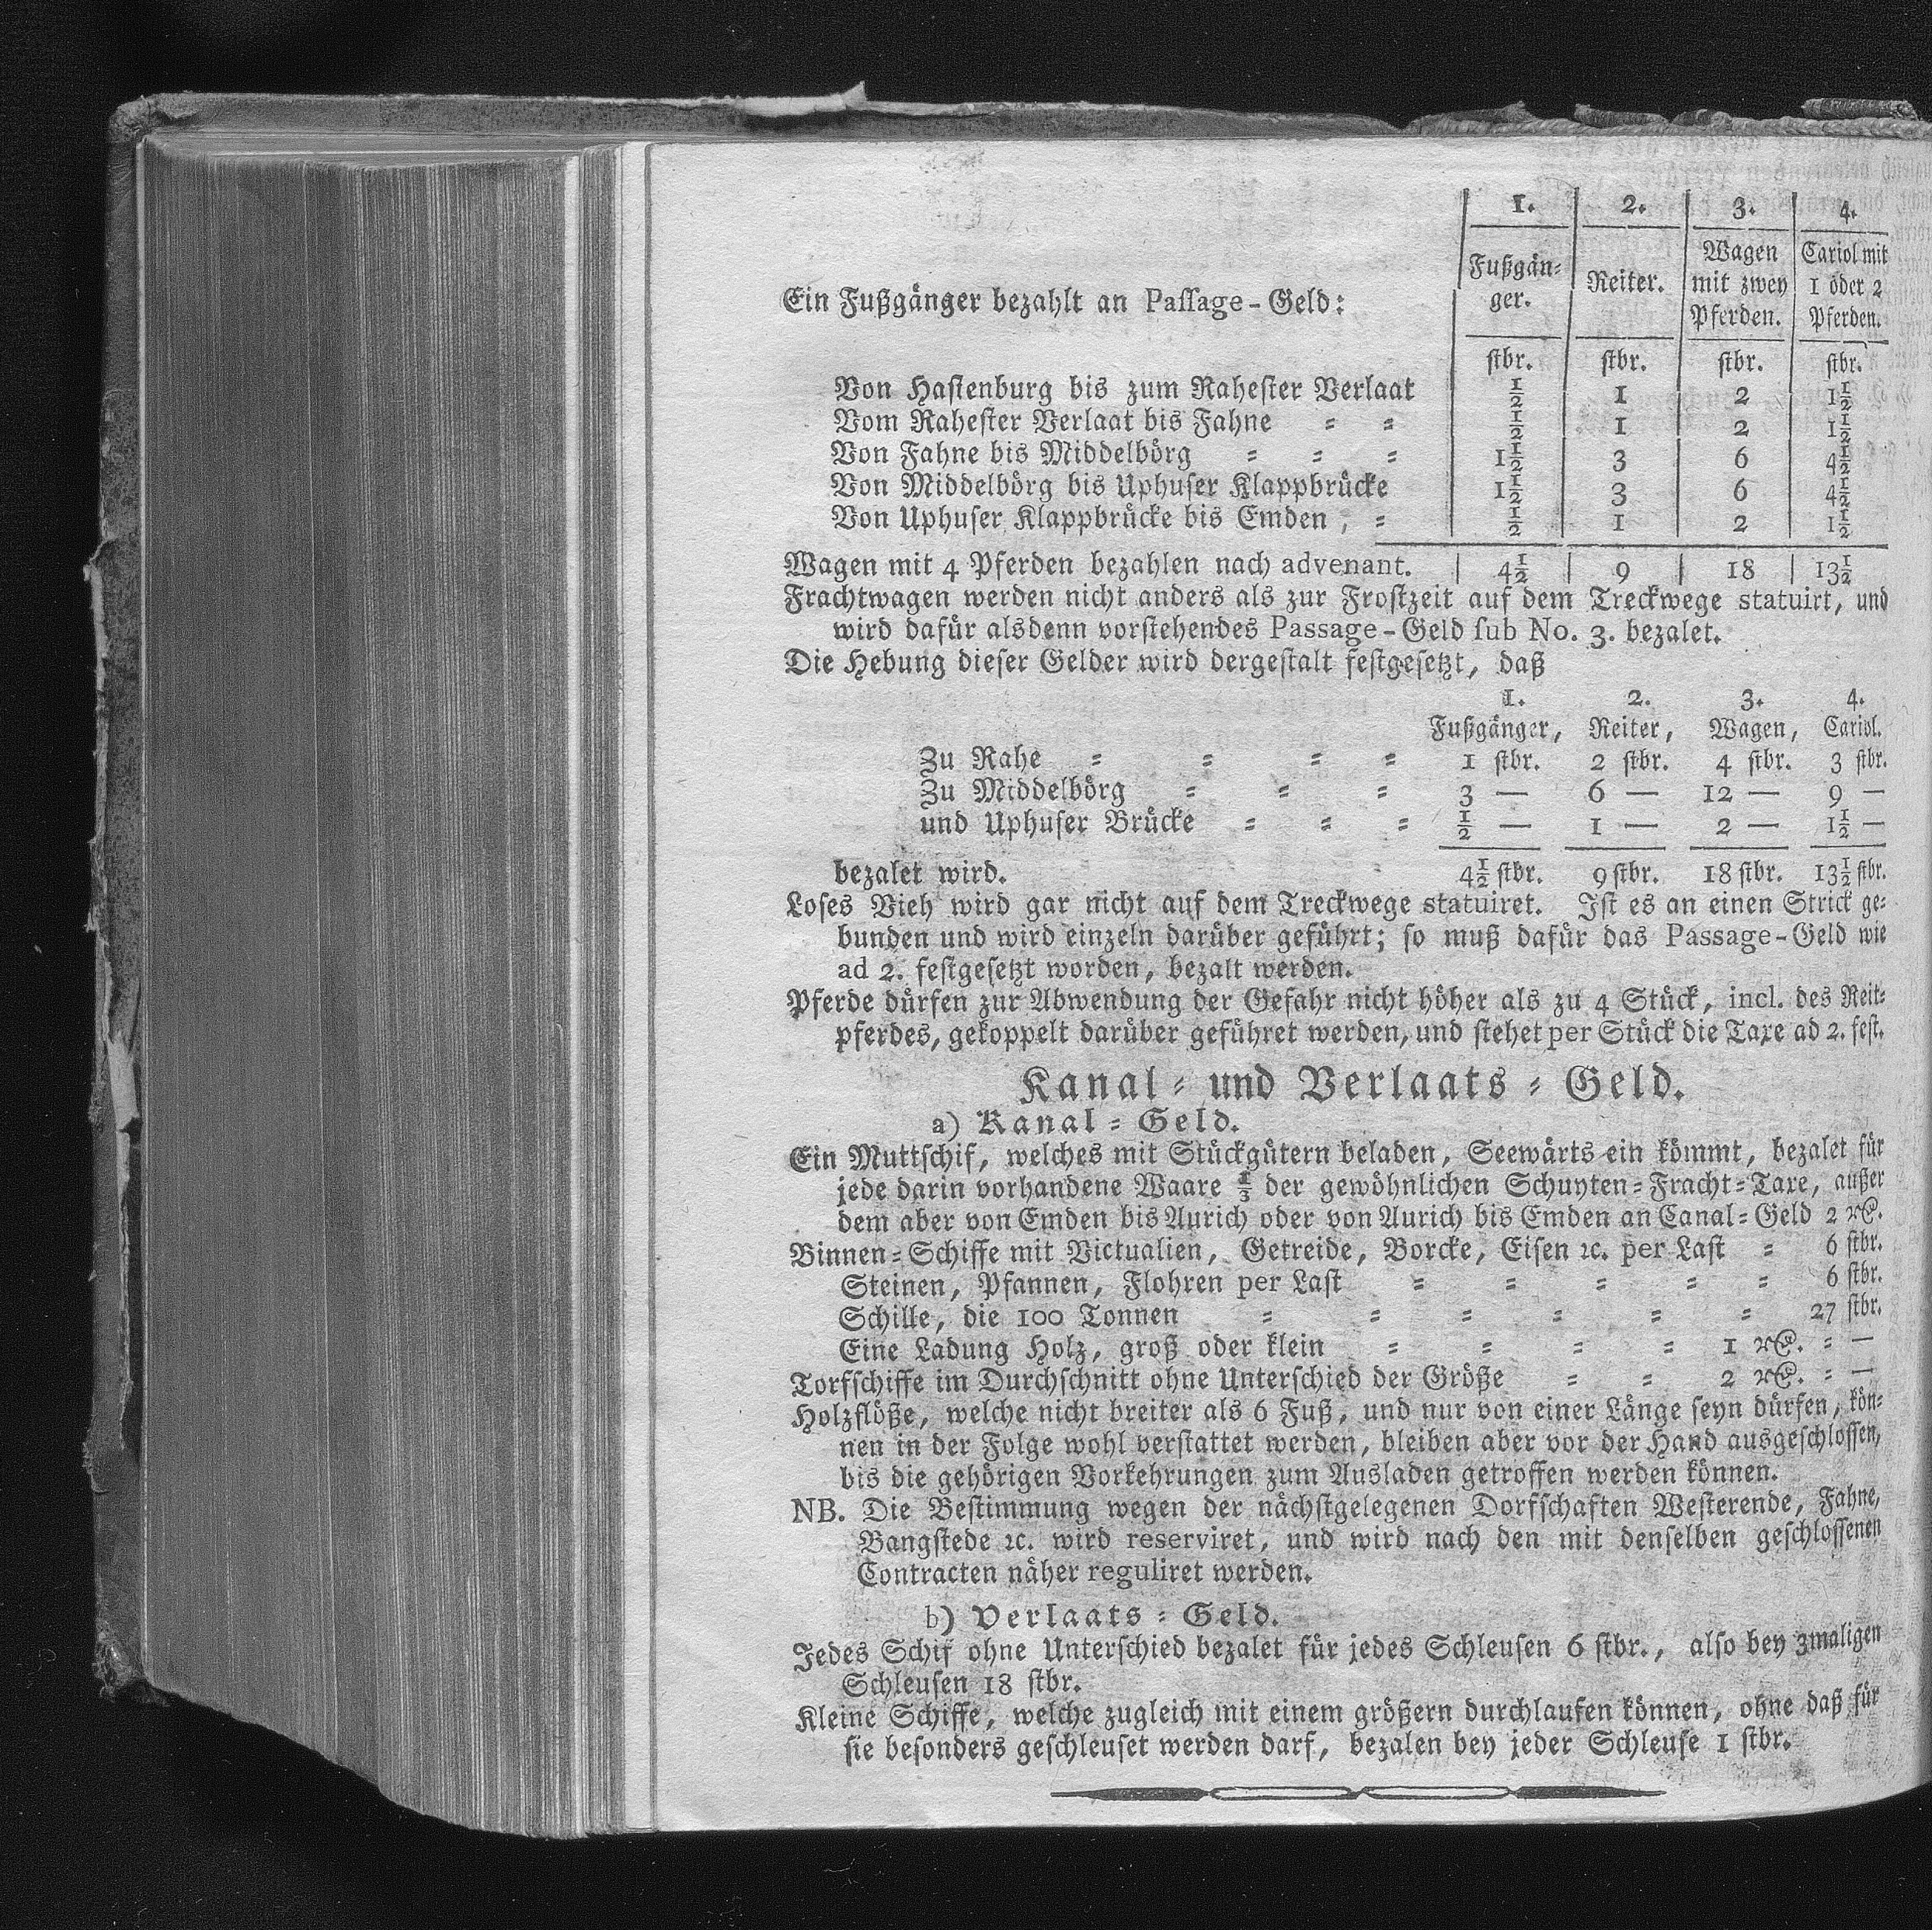 1. 2. 3. 4.
Ein Fußgänger bezahlt an Paſſage-Geld: Fußgän= ger. Reiter. Wagen mit zwey Pferden. Cariol mit 1 oder 2 Pferden.
ſtbr. ſtbr. ſtbr. ſtbr.
Von Haſtenburg bis zum Raheſter Verlaat ½ 1 2 1½
Vom Raheſter Verlaat bis Fahne = = ½ 1 2 1½
Von Fahne bis Middelbörg = = = 1½ 3 6 4½
Von Middelbörg bis Uphuſer Klappbrücke 1½ 3 6 4½
Von Uphuſer Klappbrücke bis Emden, = ½ 1 2 1½
Wagen mit 4 Pferden bezahlen nach advenant. 4½ 9 18 13½
Frachtwagen werden nicht anders als zur Froſtzeit auf dem Treckwege statuirt, und
wird dafür alsdenn vorſtehendes Passage-Geld ſub No. 3. bezalet.
Die Hebung dieſer Gelder wird dergeſtalt feſtgeſetzt, daß
1. 2. 3. 4.
Fußgänger, Reiter, Wagen, Cariol.
Zu Rahe = = = = 1 ſtbr. 2 ſtbr. 4 ſtbr. 3 ſtbr.
Zu Middelbörg = = = 3 — 6 — 12 — 9 —
und Uphuſer Brücke = = = ½ — 1 — 2 — 1½ —
bezalet wird. 4½ ſtbr. 9 ſtbr. 18 ſtbr. 13½ ſtbr.
Loſes Vieh wird gar nicht auf dem Treckwege statuiret. Iſt es an einen Strick ge=
bunden und wird einzeln darüber geführt; ſo muß dafür das Passage-Geld wie
ad 2. feſtgeſetzt worden, bezalt werden.
Pferde dürfen zur Abwendung der Gefahr nicht höher als zu 4 Stück, incl. des Reit=
pferdes, gekoppelt darüber geführet werden, und ſtehet per Stück die Taxe ad 2. feſt.
Kanal= und Verlaats=Geld.
a) Kanal=Geld.
Ein Muttſchif, welches mit Stückgütern beladen, Seewärts ein kömmt, bezalet für
jede darin vorhandene Waare ⅓ der gewöhnlichen Schuyten=Fracht=Taxe, außer
dem aber von Emden bis Aurich oder von Aurich bis Emden an Canal=Geld 2 rℓ.
Binnen=Schiffe mit Victualien, Getreide, Borcke, Eiſen ꝛc. per Laſt = 6 ſtbr.
Steinen, Pfannen, Flohren per Laſt = = = = = 6 ſtbr.
Schille, die 100 Tonnen = = = = = = 27 ſtbr.
Eine Ladung Holz, groß oder klein = = = = 1 rℓ. = —
Torfſchiffe im Durchſchnitt ohne Unterſchied der Größe = = 2 rℓ. = —
Holzflöße, welche nicht breiter als 6 Fuß, und nur von einer Länge ſeyn dürfen, kön=
nen in der Folge wohl verſtattet werden, bleiben aber vor der Hand ausgeſchloſſen,
bis die gehörigen Vorkehrungen zum Ausladen getroffen werden können.
NB. Die Beſtimmung wegen der nächſtgelegenen Dorfſchaften Weſterende, Fahne,
Bangſtede ꝛc. wird reserviret, und wird nach den mit denſelben geſchloſſenen
Contracten näher reguliret werden.
b) Verlaats=Geld.
Jedes Schif ohne Unterſchied bezalet für jedes Schleuſen 6 ſtbr., alſo bey 3maligen
Schleuſen 18 ſtbr.
Kleine Schiffe, welche zugleich mit einem größern durchlaufen können, ohne daß für
ſie beſonders geſchleuſet werden darf, bezalen bey jeder Schleuſe 1 ſtbr.